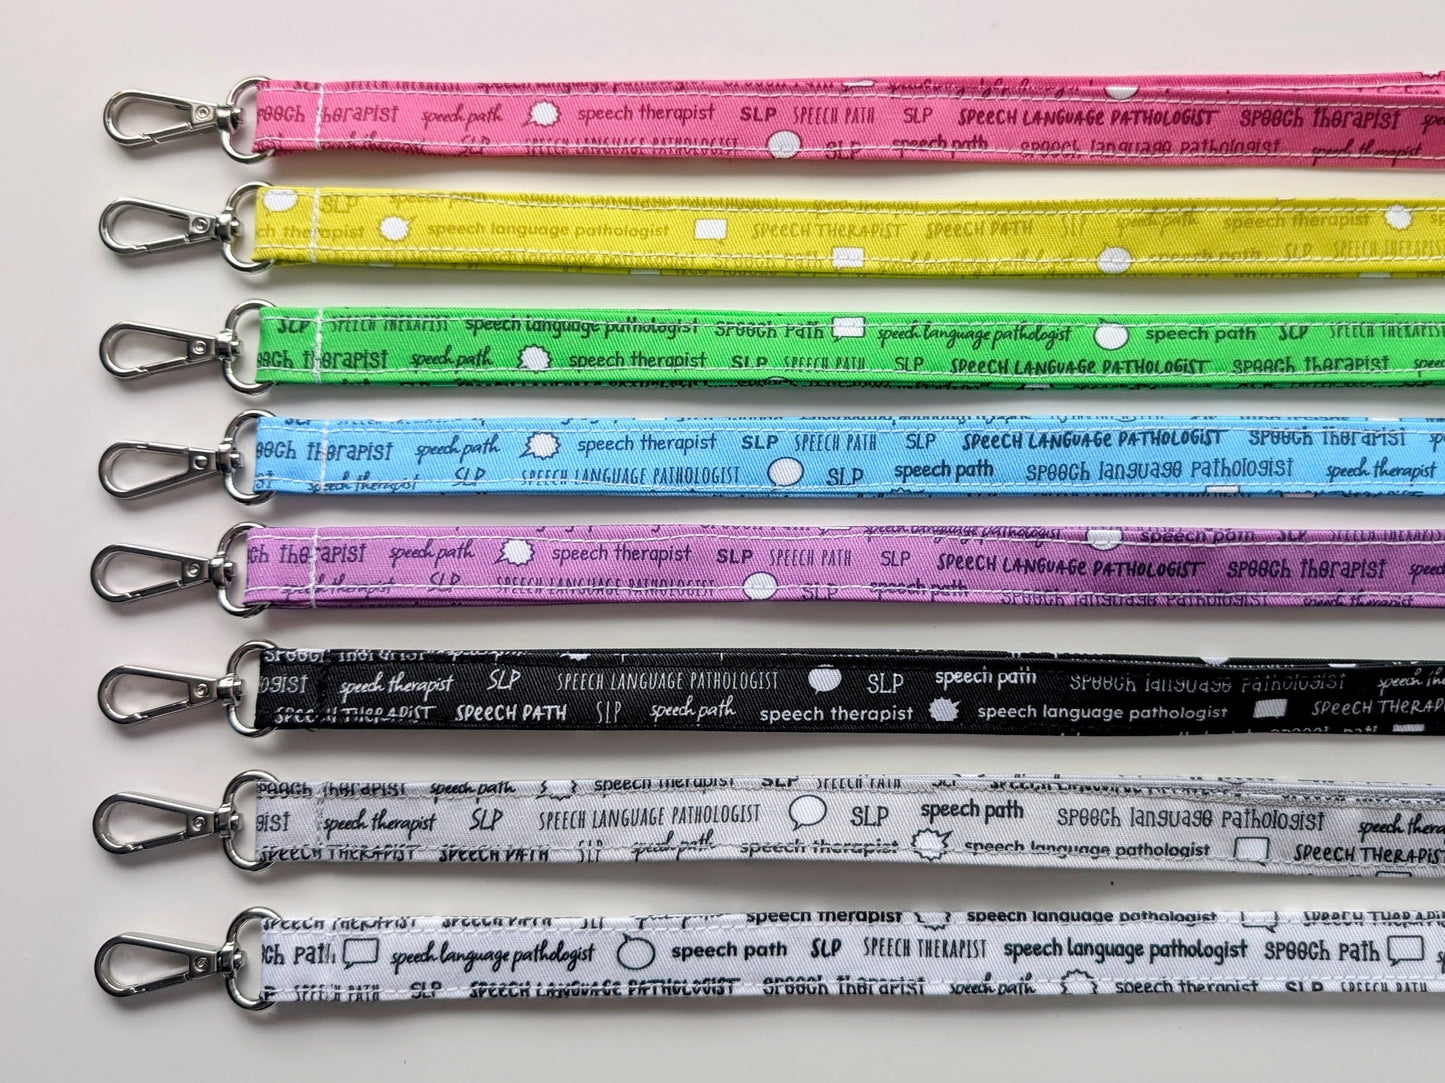 speech therapist speech path speech therapist SLP SPEECH PATH SLP SPEECH LANGUAGE PATHOLOGIST speech therapist
speech therapist SLP SPEECH LANGUAGE PATHOLOGIST SLP speech path speech language pathologist speech therapist
SLP speech path
speech language pathologist SPEECH THERAPIST SPEECH PATH SLP speech path speech therapist
SLP SPEECH THERAPIST
SLP SPEECH THERAPIST speech language pathologist speech path speech language pathologist speech path SLP SPEECH THERAPIST
speech therapist speech path speech therapist SLP SPEECH PATH SLP SPEECH LANGUAGE PATHOLOGIST speech therapist
speech therapist speech path speech therapist SLP SPEECH PATH SLP SPEECH LANGUAGE PATHOLOGIST speech therapist
speech therapist SLP SPEECH LANGUAGE PATHOLOGIST SLP speech path speech language pathologist speech therapist
speech language pathologist speech path SLP
therapist speech path speech therapist SLP SPEECH PATH SLP SPEECH LANGUAGE PATHOLOGIST speech therapist
speech therapist SLP SPEECH LANGUAGE PATHOLOGIST SLP speech path speech language pathologist speech therapist
speech therapist SLP SPEECH LANGUAGE PATHOLOGIST SLP speech path speech language pathologist
SPEECH THERAPIST SPEECH PATH SLP speech path speech therapist speech language pathologist
speech therapist speech path speech therapist SLP SPEECH PATH
speech therapist SLP SPEECH LANGUAGE PATHOLOGIST SLP speech path speech language pathologist
SPEECH THERAPIST SPEECH PATH SLP speech path speech therapist speech language pathologist SPEECH THERAPIST
SPEECH THERAPIST SPEECH PATH SLP speech therapist speech language pathologist
path speech language pathologist speech path SLP SPEECH THERAPIST speech language pathologist speech path
SPEECH PATH SLP SPEECH LANGUAGE PATHOLOGIST speech therapist speech path speech therapist SLP SPEECH PATH